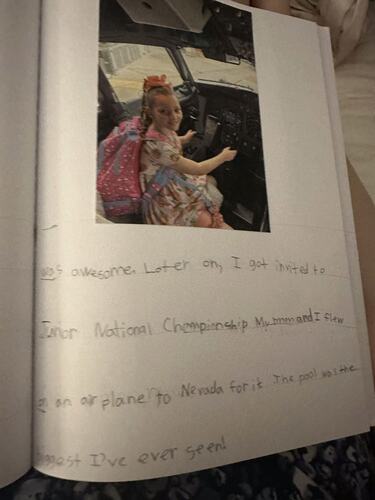 was awesome. Later on, I got invited to
Junior National Championship My mom and I flew
on an airplane to Nevada for it. The pool was the
biggest I've ever seen!